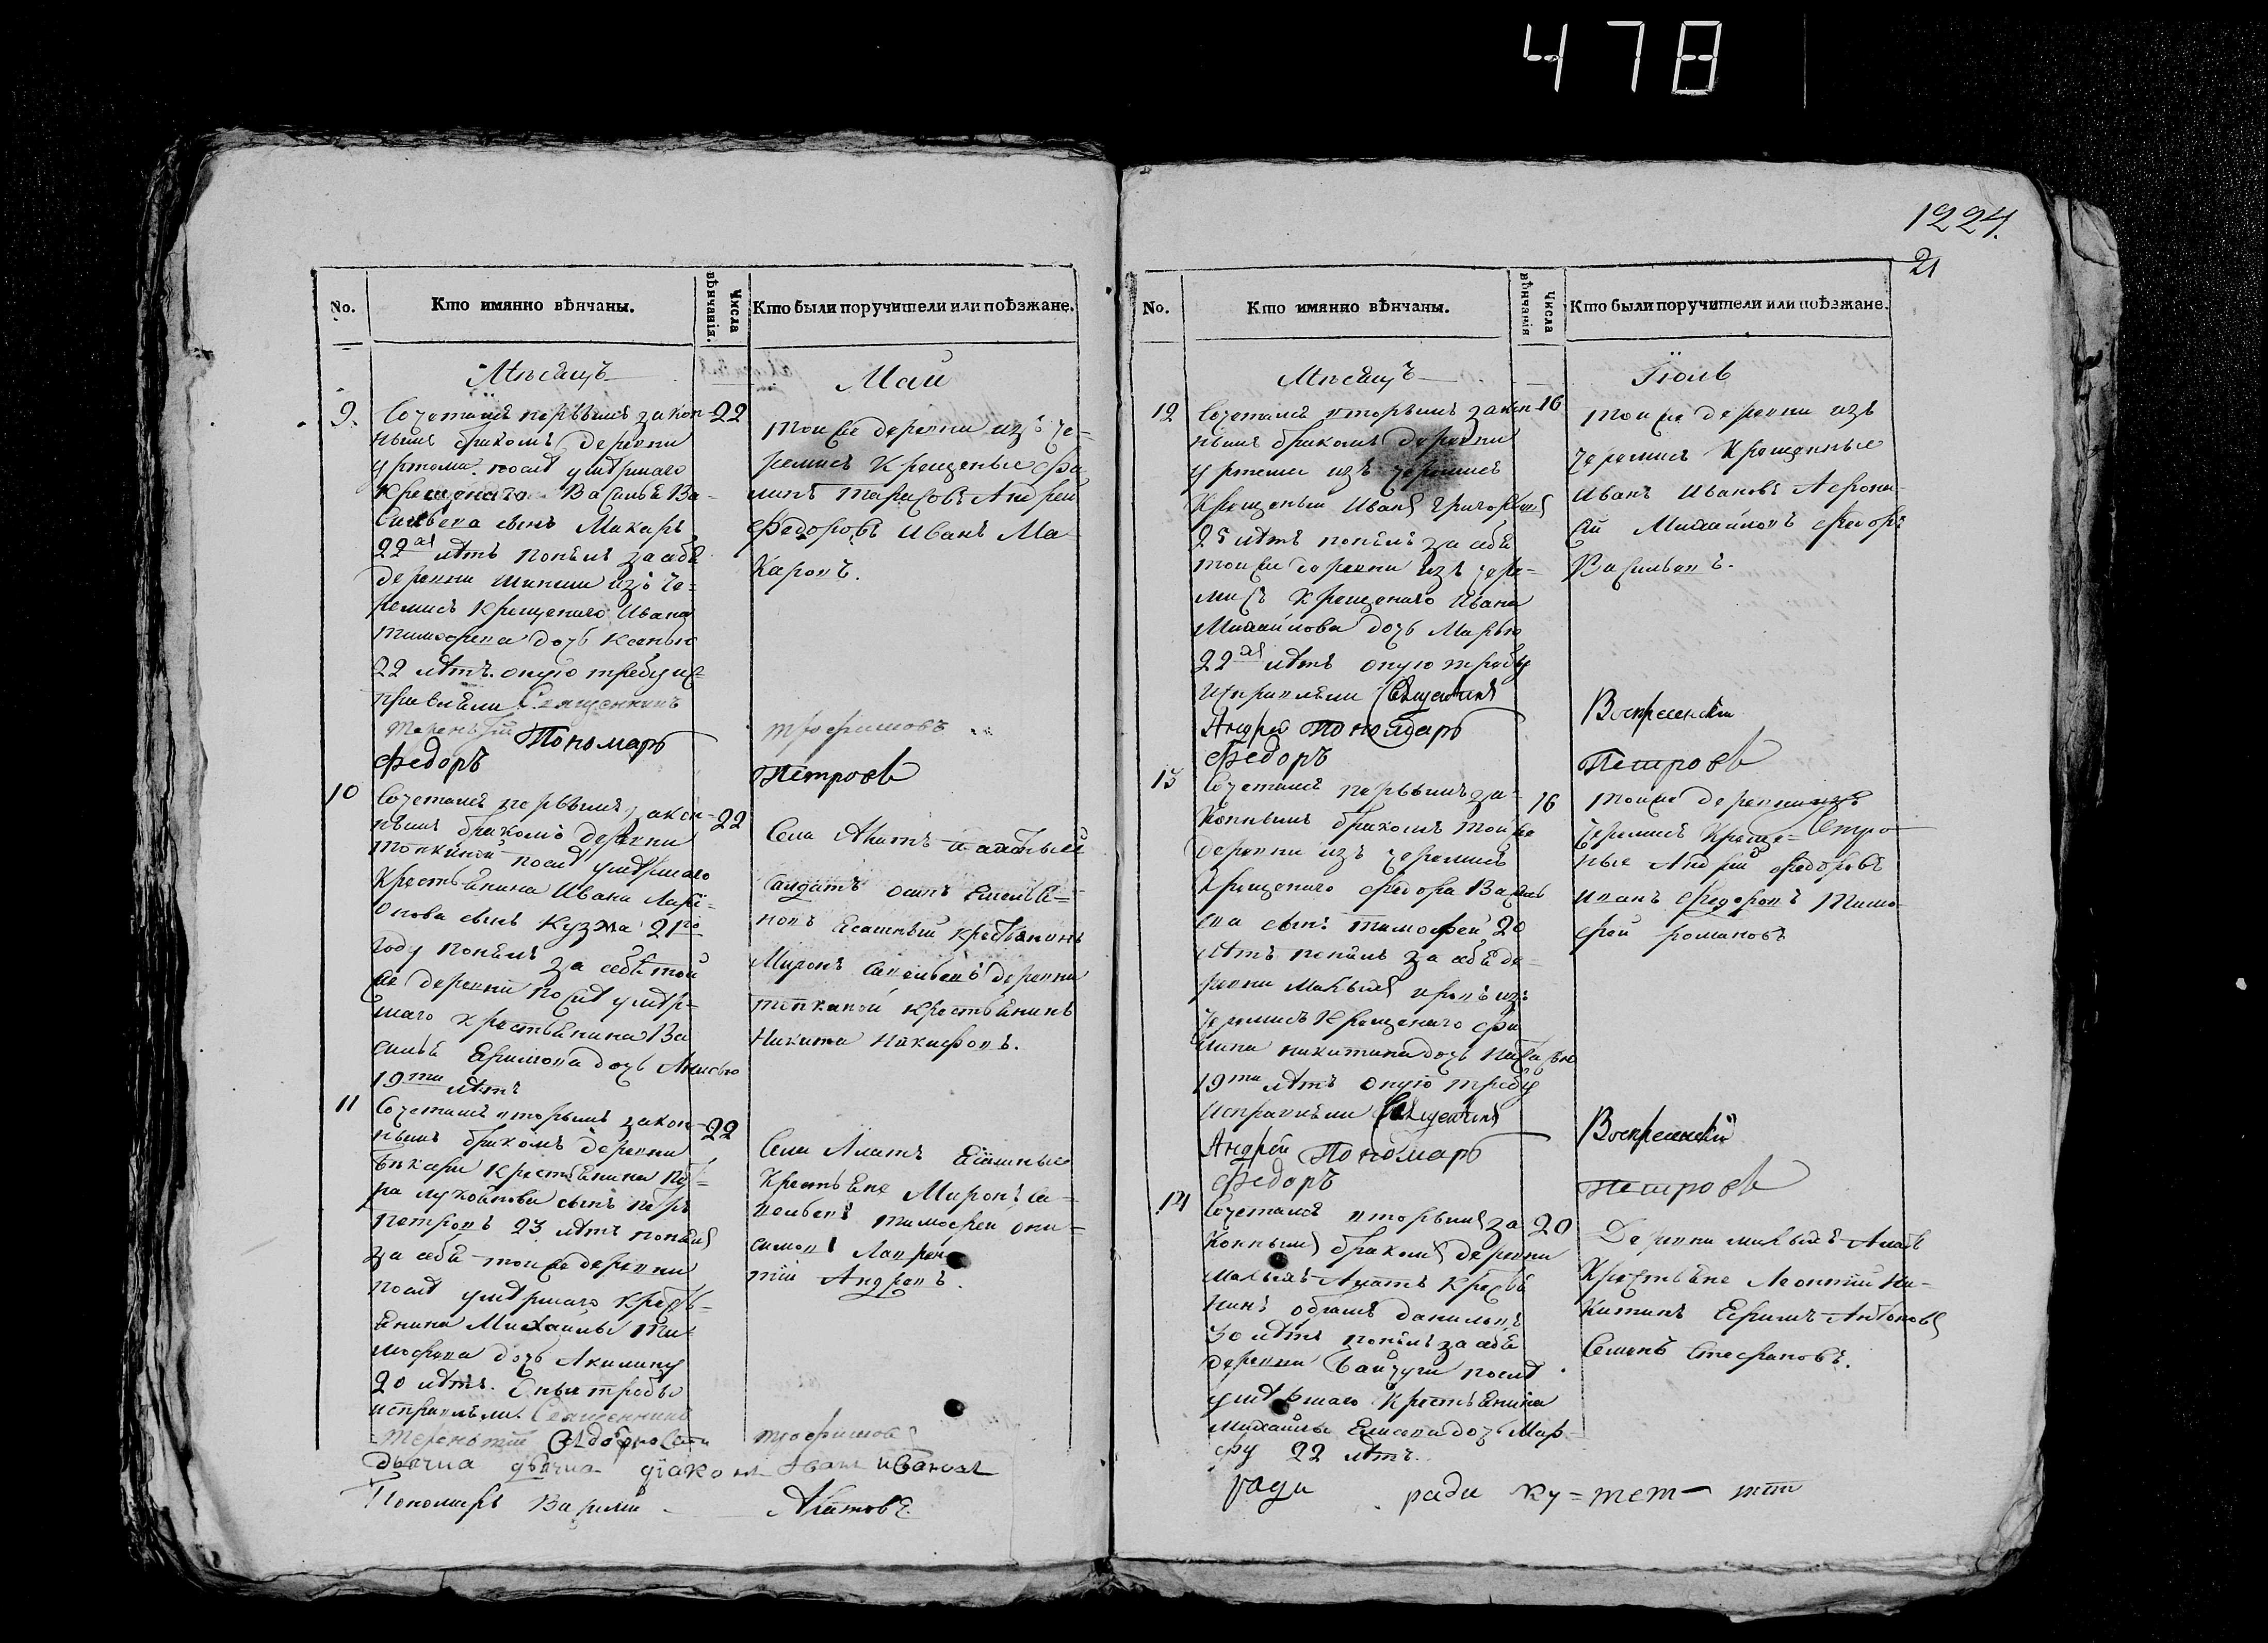 478
No.
Кто имянно вѣнчаны.
Числа вѣнчанія.
Кто были поручители или поѣзжане.
Мѣсяцъ
Май
9.
Сочетался первымъ закон-
нымъ бракомъ деревни
Уртемы послѣ умѣршаго
крещенаго Василья Ва-
сильева сынъ Макаръ
22 лѣтъ понялъ за себя
деревни из че-
ремисъ крещенаго Ивана
Тимофеева дочь Ксенью
22 лѣтъ. оную требу ис-
правляли Священникъ
Терентій Пономарь
Федоръ
22
той же деревни изъ че-
ремисъ крещеные Фи-
липъ Тарасовъ Андрей
Федоровъ Иванъ Ма-
каровъ.
Трофимовъ
Петровъ
10
Сочетался первымъ закон-
нымъ бракомъ деревни
послѣ умѣршаго
крестьянина Ивана Ларі-
онова сынъ Кузма 21го
году понялъ за себя той
же деревни послѣ умѣр-
шаго крестьянина Ва
силья дочь Анисью
19ти лѣтъ
22
Села Алатъ
Салдатъ Осипъ Емелья-
новъ Ясашный крестьянинъ
Миронъ Савельевъ деревни
крестьянинъ
Никита Никифоровъ.
11
Сочетался вторымъ закон-
нымъ бракомъ деревни
крестьянина Пет-
ра сынъ Петръ
Петровъ 23 лѣтъ понялъ
за себя той же деревни
послѣ умѣршаго кресть-
янина Михайлы Ти-
мофеева дочь Акилину
20 лѣтъ. Сныи требы
исправляли. Священникъ
Терентій
діаконъ Иванъ Ивановъ
Пономарь
22
Села Алатъ Ясашные
крестьяне Миронъ Са-
вельевъ Тимофей Они-
симовъ Лаврен-
тій Андреевъ.
Трофимовъ
Алатовъ.
1224.
21
No.
Кто имянно вѣнчаны.
Числа вѣнчанія
Кто были поручители или поѣзжане.
Мѣсяцъ
Іюль
12
Сочетался вторымъ закон-
нымъ бракомъ деревни
Уртемы изъ черемисъ
крещеный Иванъ Григорьевъ
25 лѣтъ понялъ за себя
той же деревни изъ чере-
мисъ крещенаго Ивана
Михайлова дочь Марью
22 лѣтъ оную требу
исправляли Священникъ
Андрей Пономарь
Федоръ
16
той же деревни изъ
черемисъ крещенные
Иванъ Ивановъ Афона-
сій Михайловъ Федоръ
Васильевъ.
Воскресенскій
Петровъ
13
Сочетался первымъ за-
коннымъ бракомъ той же
деревни изъ черемисъ
крещенаго Федора Василь
ева сынъ Тимофей 20
лѣтъ понялъ за себя де-
ревни изъ
черемисъ крещенаго Фи
липа Никитина дочь
19ти лѣтъ оную требу
исправляли Священникъ
Андрей Пономарь
Федоръ
16
той же деревни изъ
черемисъ креще-
ные Андрей Федоровъ
Иванъ Федоровъ Тимо-
фей Романовъ
Воскресенскій
Петровъ
14
Сочетался вторымъ за
коннымъ бракомъ деревни
Малыхъ Алатъ крестья
нинъ Данильевъ
30 лѣтъ понялъ за себя
деревни послѣ
умѣршаго крестьянина
Михайлы дочь Мар-
фу 22 лѣтъ.
20
Деревни Малыхъ Алатъ
крестьяне Леонтій Ни-
китинъ Ефимъ Антоновъ
Семенъ Стефановъ.
ради ку=тет